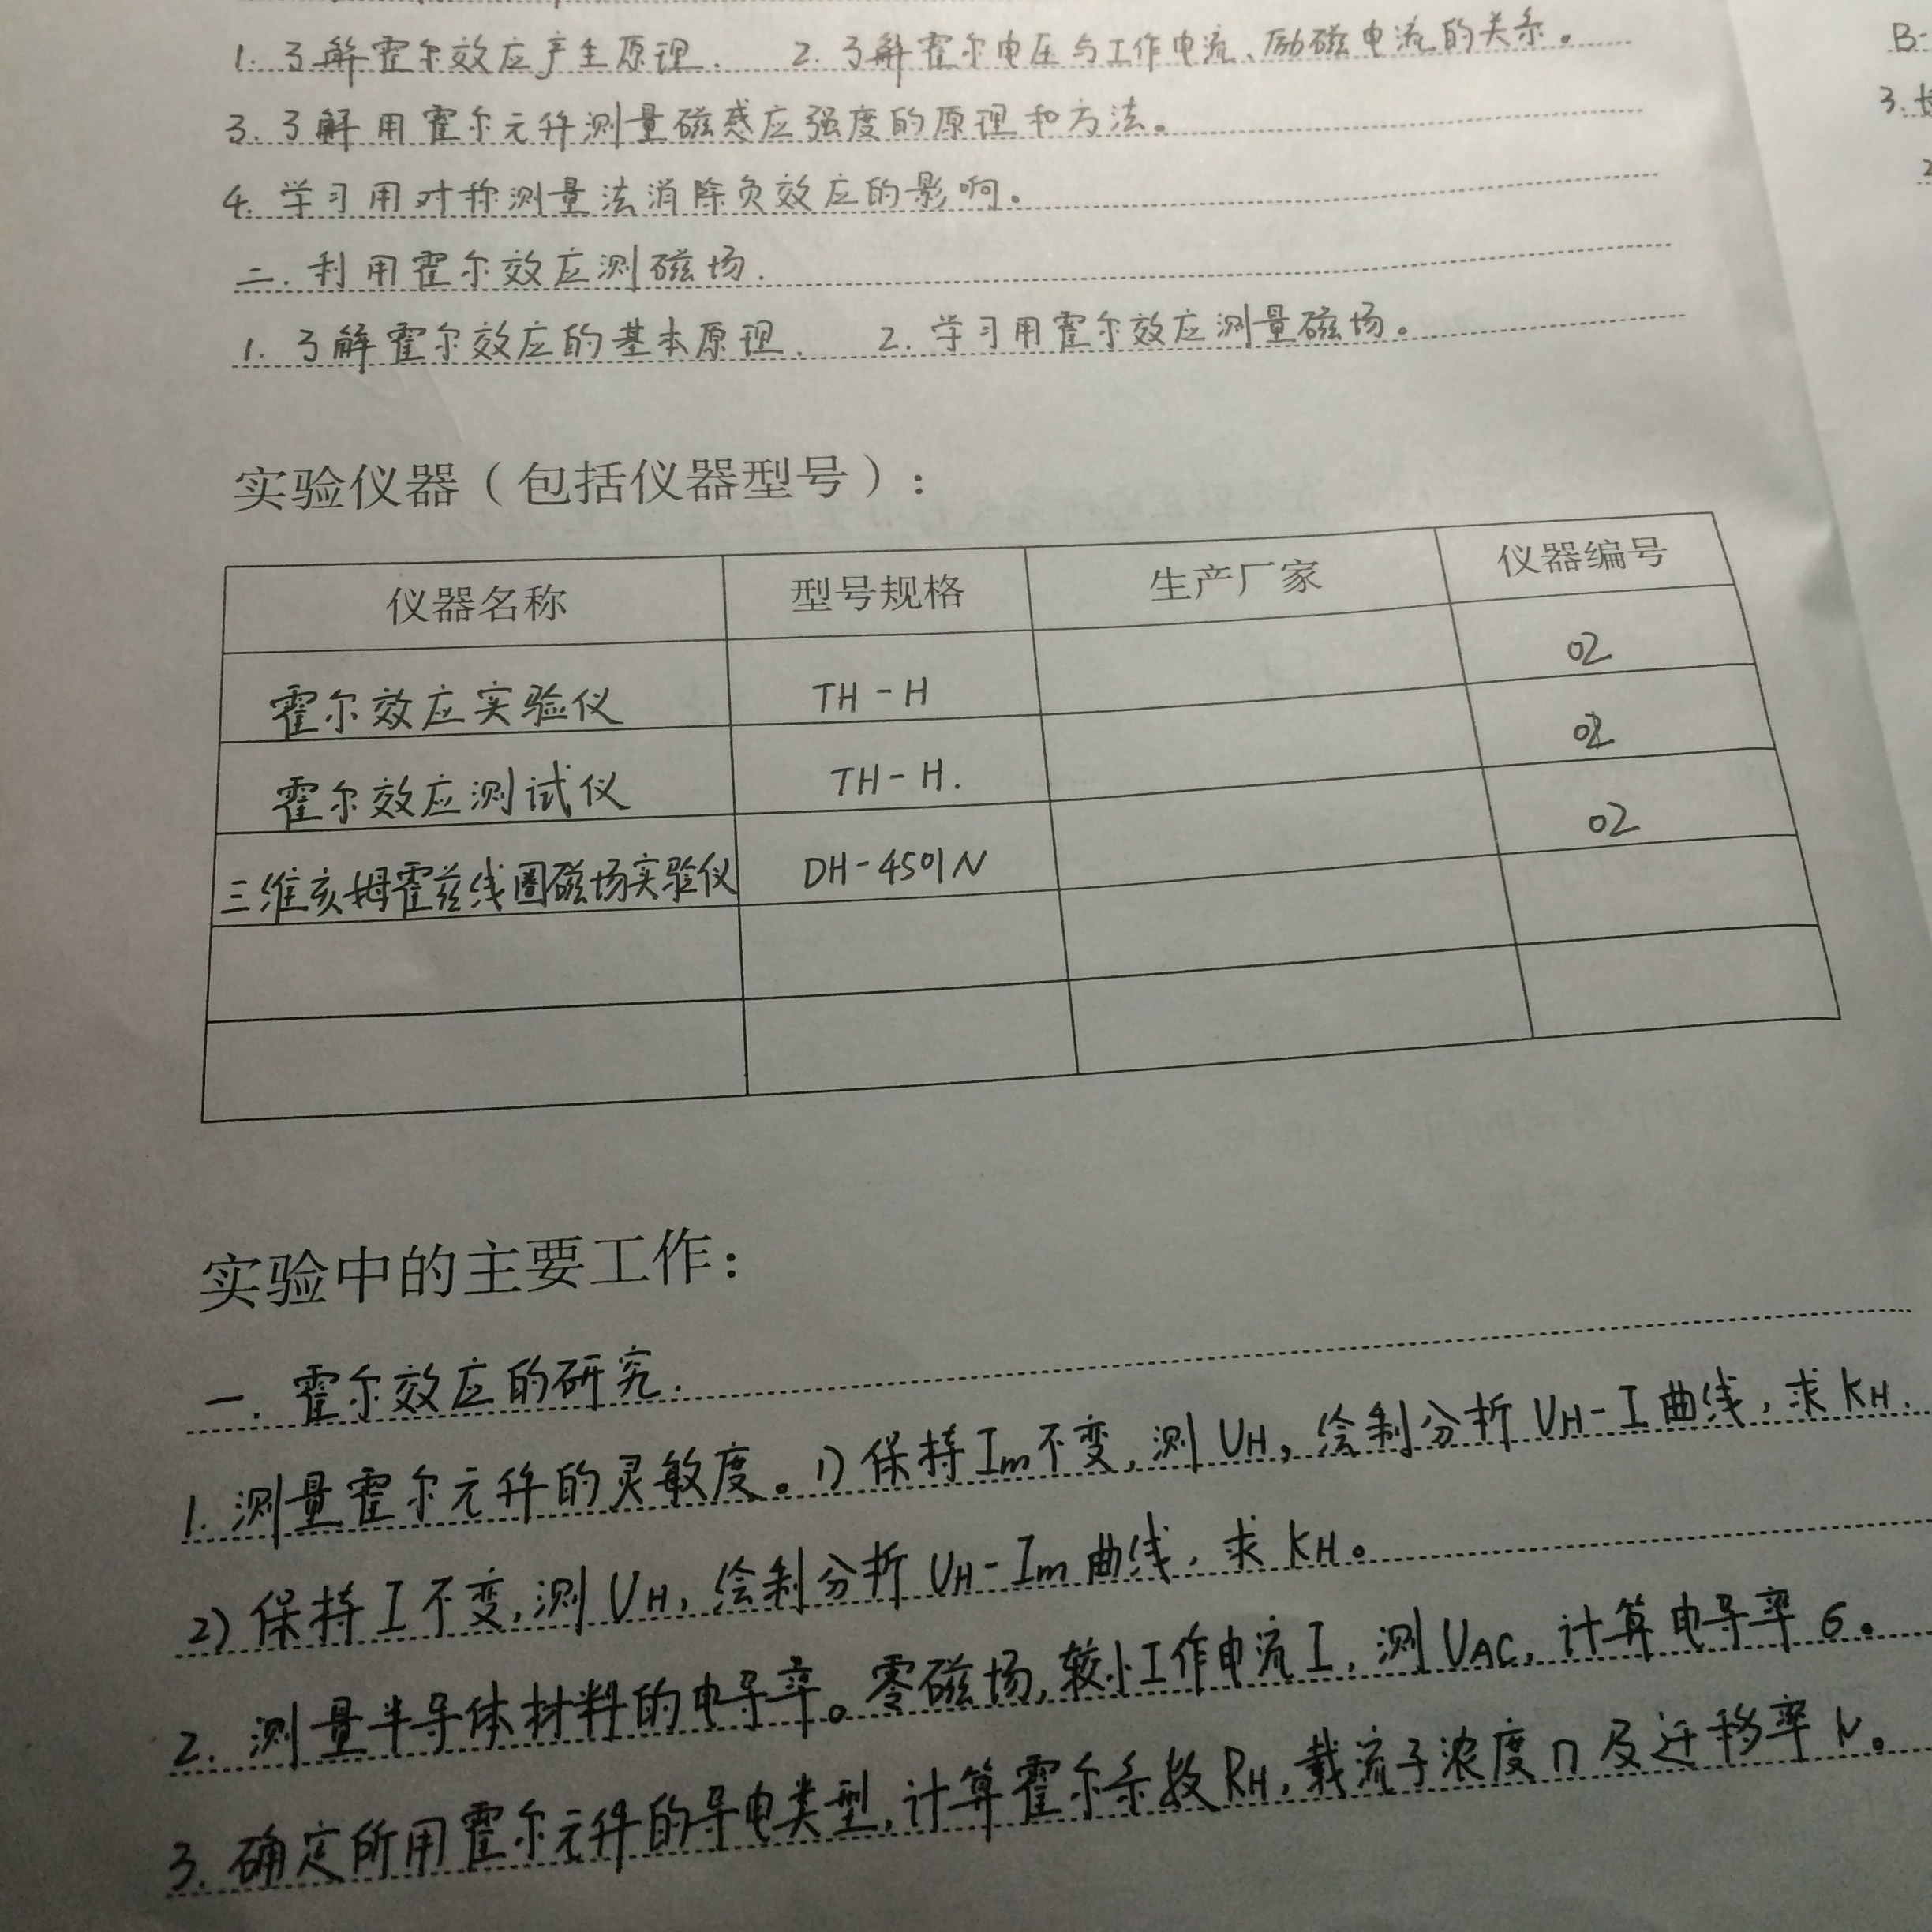 1. 了解霍尔效应产生原理. 2. 了解霍尔电压与工作电流、励磁电流的关系。
3. 了解用霍尔元件测量磁感应强度的原理和方法。
4. 学习用对称测量法消除负效应的影响。
二. 利用霍尔效应测磁场.
1. 了解霍尔效应的基本原理. 2. 学习用霍尔效应测量磁场。
实验仪器（包括仪器型号）：
仪器名称 型号规格 生产厂家 仪器编号
霍尔效应实验仪 TH-H 02
霍尔效应测试仪 TH-H. 02
三维亥姆霍兹线圈磁场实验仪 DH-4501N 02
实验中的主要工作：
一. 霍尔效应的研究.
1. 测量霍尔元件的灵敏度。1) 保持Im不变, 测UH, 绘制分析UH-I曲线, 求KH.
2) 保持I不变, 测UH, 绘制分析UH-Im曲线, 求KH。
2. 测量半导体材料的电导率。零磁场, 较小工作电流I, 测UAC, 计算电导率σ。
3. 确定所用霍尔元件的导电类型, 计算霍尔系数RH, 载流子浓度n及迁移率μ。
B-
3.